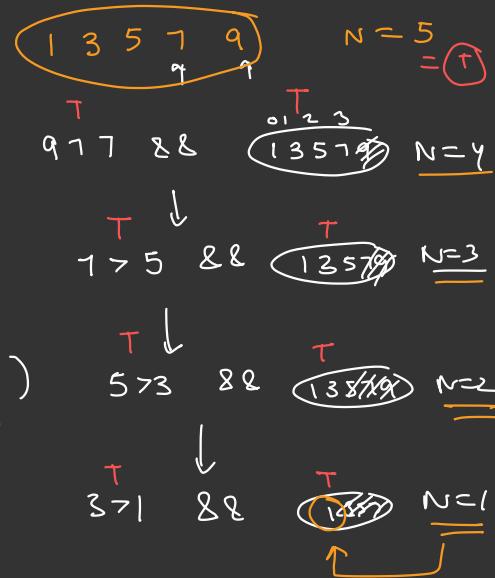 1 3 5 7 9 N = 5
9 9 = T
T T
0 1 2 3
9 > 7 && 1 3 5 7 9 N = 4
T T
7 > 5 && 1 3 5 7 9 N = 3
T T
) 5 > 3 && 1 3 5 7 9 N = 2
T T
3 > 1 && 1 3 5 7 N = 1